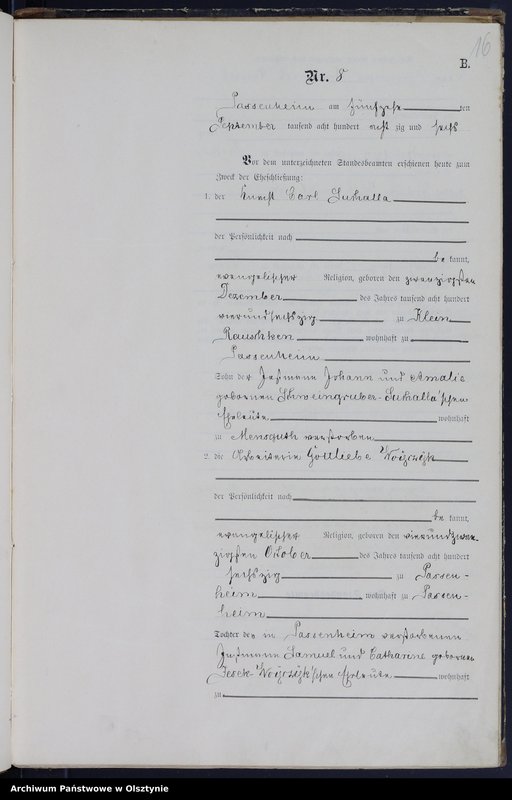 16
B.
Nr. 8
Passenheim am fünfzehn ten
September tausend acht hundert acht zig und sechs
Vor dem unterzeichneten Standesbeamten erschienen heute zum
Zweck der Eheschließung:
1. der Knecht Carl Sukalla
der Persönlichkeit nach
be kannt,
evangelischer Religion, geboren den zwanzigsten
Dezember des Jahres tausend acht hundert
vierundsechszig zu Klein
Rauschken wohnhaft zu
Passenheim
Sohn der Instmann Johann und Amalie
geborenen Schweingruber-Sukalla'schen
Eheleute wohnhaft
zu Mensguth verstorben
2. die Arbeiterin Gottliebe
der Persönlichkeit nach
be kannt,
evangelischer Religion, geboren den vierundzwan-
zigsten October des Jahres tausend acht hundert
sechszig zu Passen-
heim wohnhaft zu Passen-
heim
Tochter der in Passenheim verstorbenen
Instmann Samuel und Catharine geborenen
Eheleute wohnhaft
zu
Archiwum Państwowe w Olsztynie